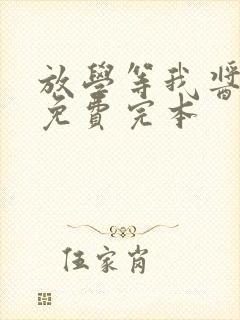 放學等我醬
免費完本
伍家肖